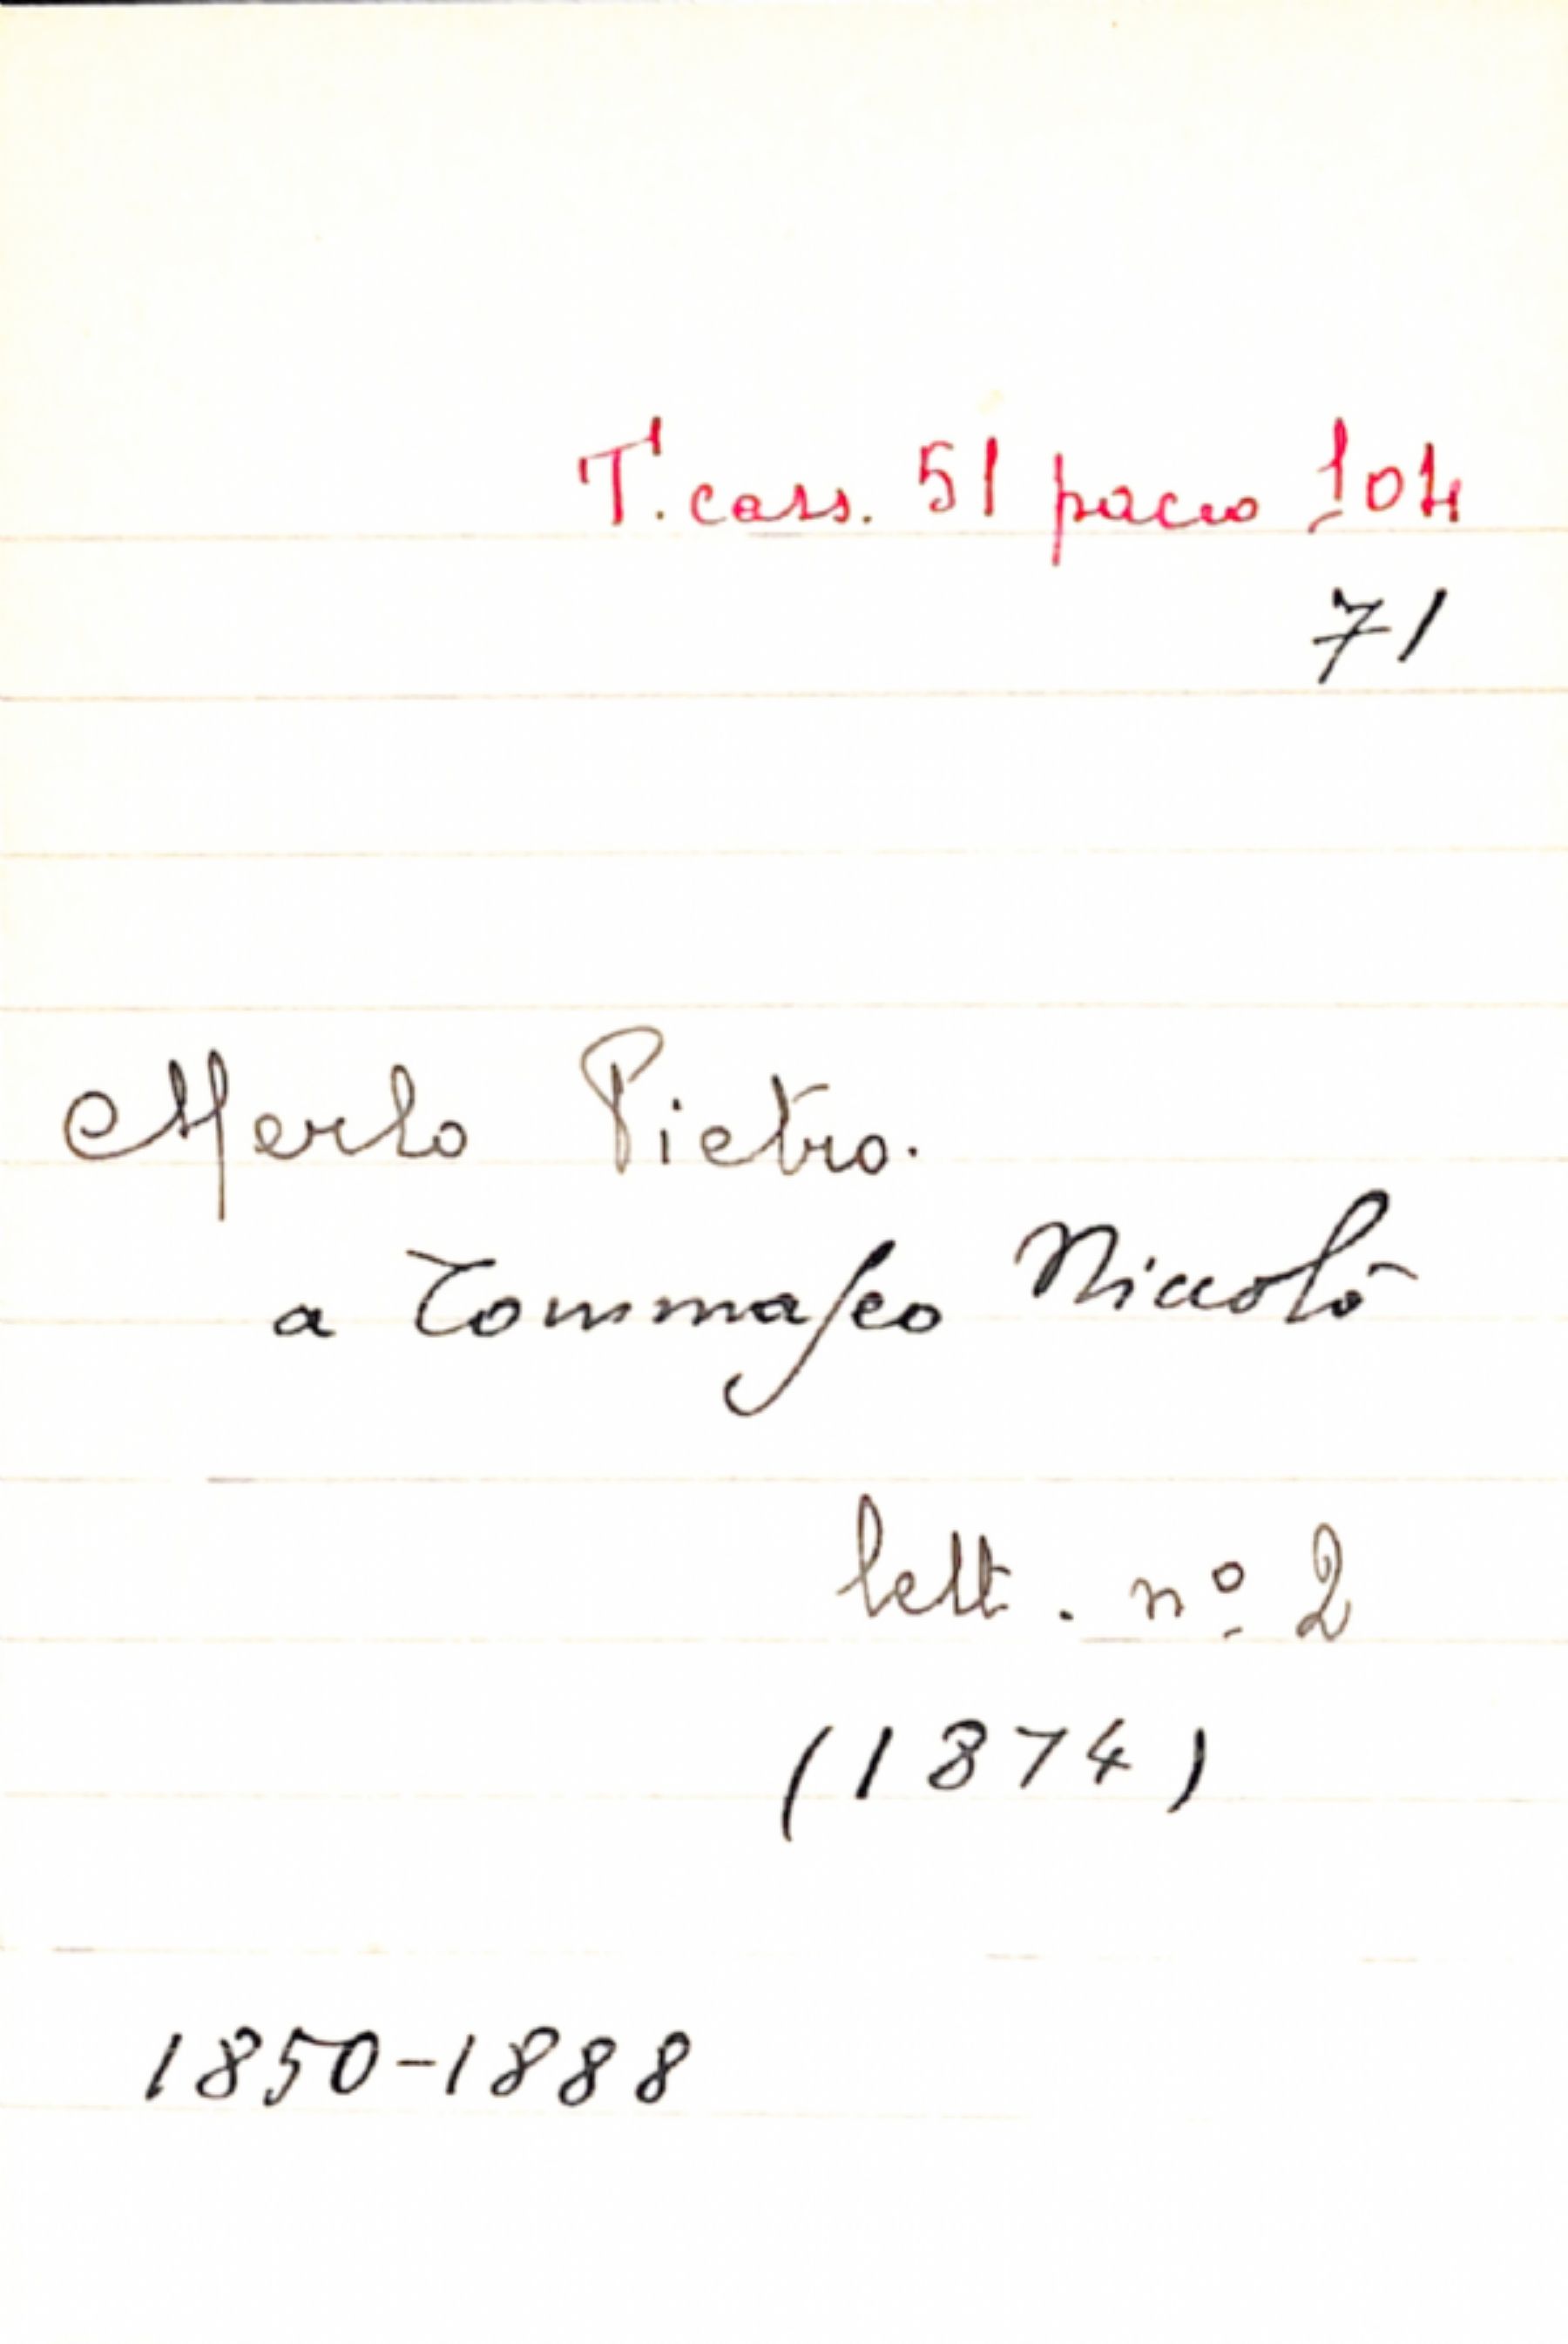 T. cass. 51 pacco 104
71
Merlo Pietro.
a Tommaseo Niccolò
lett. nº 2
(1874)
1850-1888